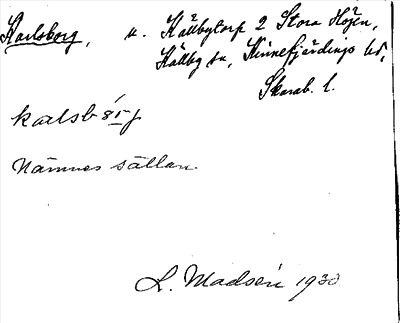 Karlsborg, u. Källbytorp 2 Stora Höjen,
Källby sn, Kinnefjärdings hd,
Skarab. l.
Nämnes sällan.
L. Madsén 1930